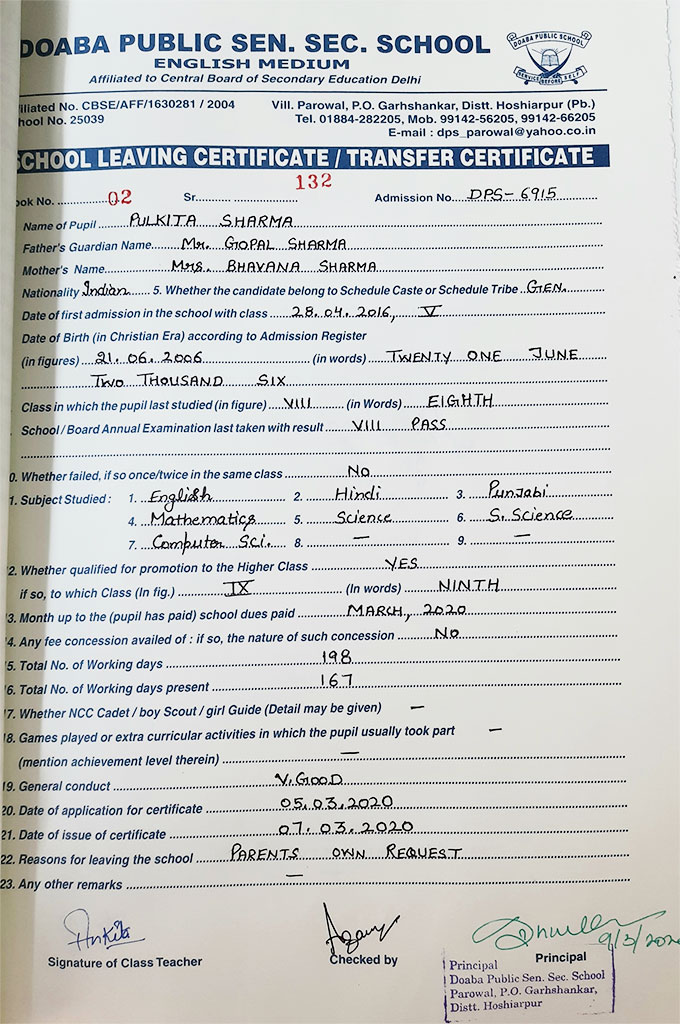 DOABA PUBLIC SEN. SEC. SCHOOL
ENGLISH MEDIUM
Affiliated to Central Board of Secondary Education Delhi
DOABA PUBLIC SCHOOL
SERVICE BEFORE SELF
iliated No. CBSE/AFF/1630281 / 2004 Vill. Parowal, P.O. Garhshankar, Distt. Hoshiarpur (Pb.)
hool No. 25039 Tel. 01884-282205, Mob. 99142-56205, 99141-66205
E-mail : dps_parowal@yahoo.co.in
SCHOOL LEAVING CERTIFICATE / TRANSFER CERTIFICATE
ok No. 02 Sr. 132 Admission No. DPS-6915
Name of Pupil PULKITA SHARMA
Father's Guardian Name Mr. GOPAL SHARMA
Mother's Name Mrs. BHAVANA SHARMA
Nationality Indian 5. Whether the candidate belong to Schedule Caste or Schedule Tribe GEN.
Date of first admission in the school with class 28.04.2016, V
Date of Birth (in Christian Era) according to Admission Register
(in figures) 21.06.2006 (in words) TWENTY ONE JUNE
TWO THOUSAND SIX
Class in which the pupil last studied (in figure) VIII (in Words) EIGHTH
School / Board Annual Examination last taken with result VIII PASS
0. Whether failed, if so once/twice in the same class NO
1. Subject Studied : 1. English 2. Hindi 3. Punjabi
4. Mathematics 5. Science 6. S. Science
7. Computer Sci. 8. — 9. —
2. Whether qualified for promotion to the Higher Class YES
if so, to which Class (In fig.) IX (In words) NINTH
3. Month up to the (pupil has paid) school dues paid MARCH, 2020
4. Any fee concession availed of : if so, the nature of such concession NO
5. Total No. of Working days 198
6. Total No. of Working days present 167
7. Whether NCC Cadet / boy Scout / girl Guide (Detail may be given) —
8. Games played or extra curricular activities in which the pupil usually took part —
(mention achievement level therein) —
19. General conduct V. GOOD
20. Date of application for certificate 05.03.2020
21. Date of issue of certificate 07.03.2020
22. Reasons for leaving the school PARENTS OWN REQUEST
23. Any other remarks —
Ankita
9/3/2020
Signature of Class Teacher Checked by Principal
Principal
Doaba Public Sen. Sec. School
Parowal, P.O. Garhshankar,
Distt. Hoshiarpur